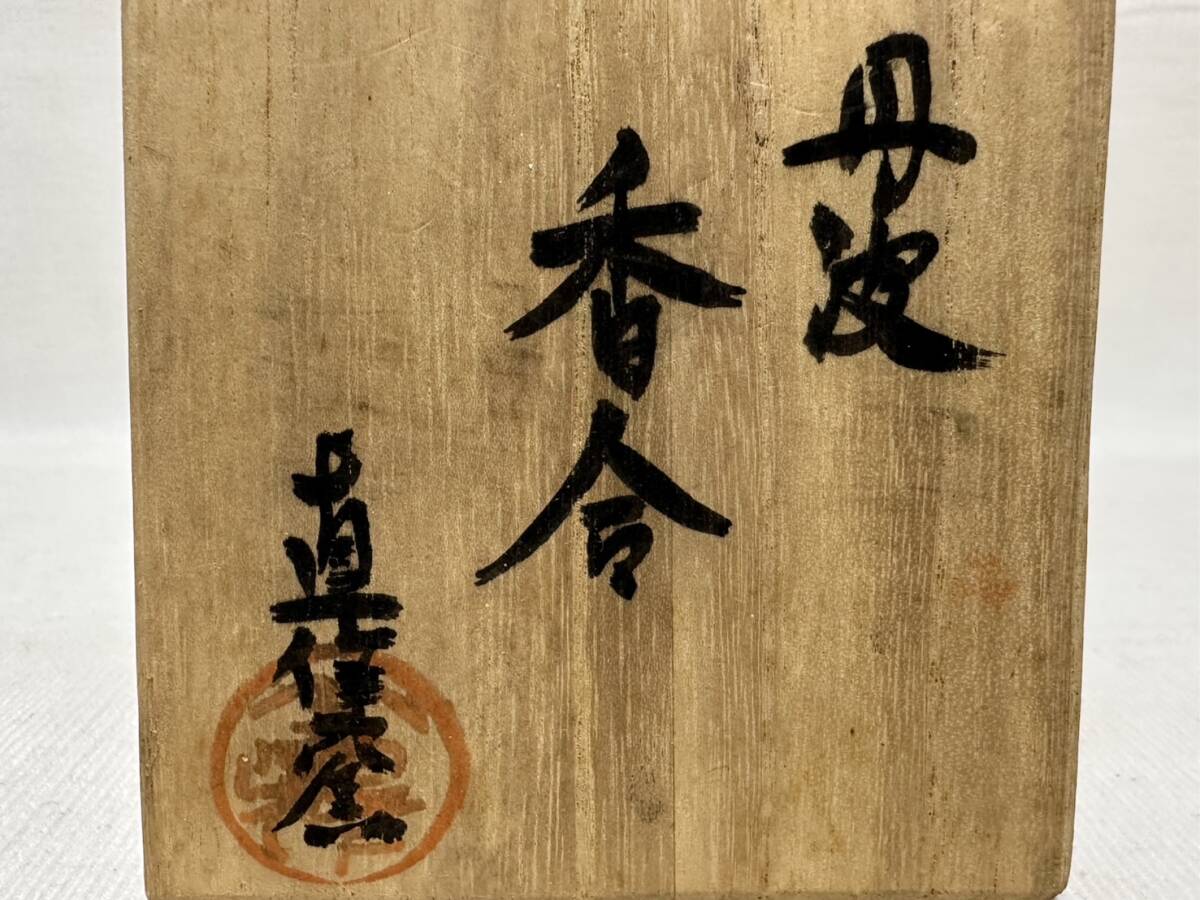 丹波
香合
直信窯